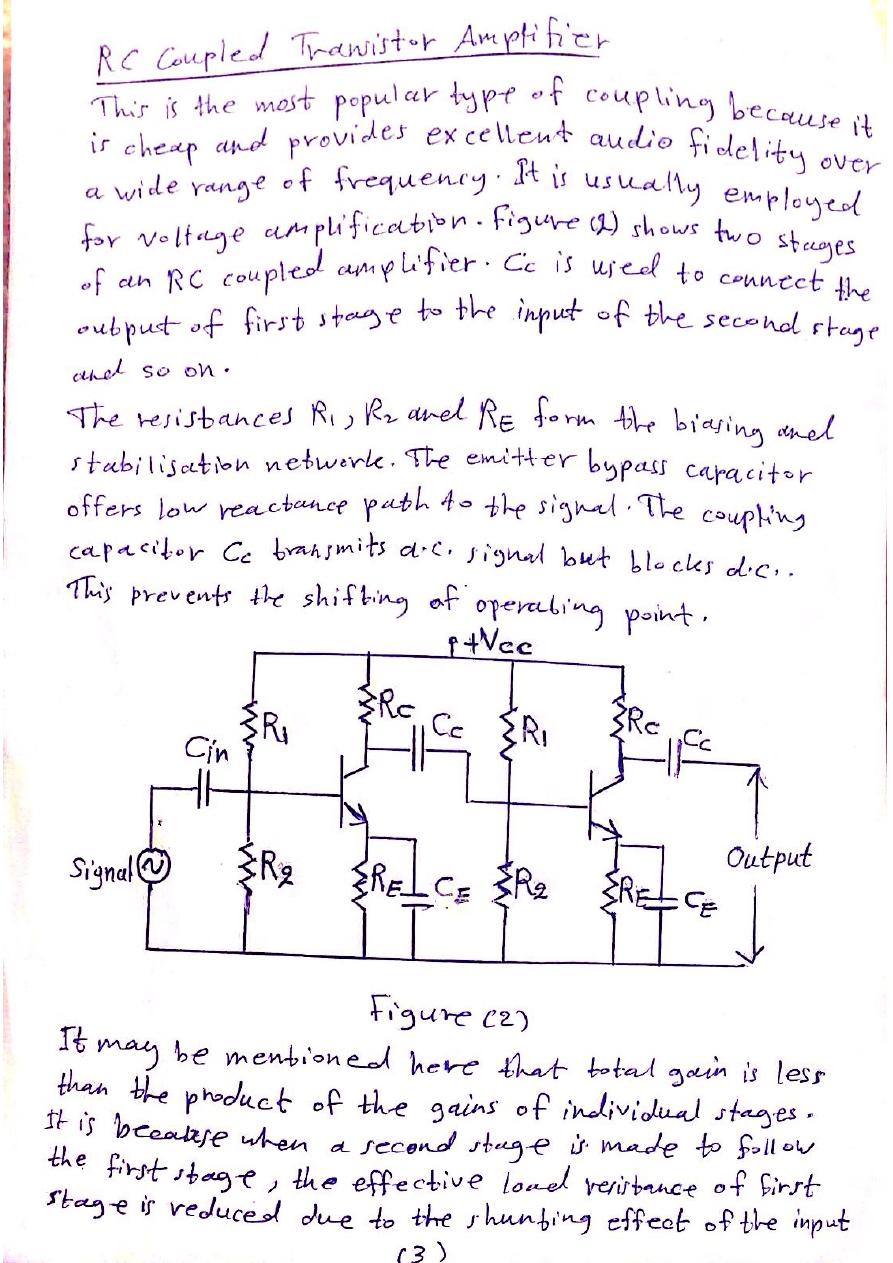 RC Coupled Transistor Amplifier
This is the most popular type of coupling because it
is cheap and provides excellent audio fidelity over
a wide range of frequency. It is usually employed
for voltage amplification. Figure (2) shows two stages
of an RC coupled amplifier. Cc is used to connect the
output of first stage to the input of the second stage
and so on.
The resistances R1, R2 and RE form the biasing and
stabilisation network. The emitter bypass capacitor
offers low reactance path to the signal. The coupling
capacitor Cc transmits a.c. signal but blocks d.c..
This prevents the shifting of operating point.
+Vcc
R1
Rc
Cc
R1
Rc
Cc
Cin
Signal
R2
RE
CE
R2
RE
CE
Output
Figure (2)
It may be mentioned here that total gain is less
than the product of the gains of individual stages.
It is because when a second stage is made to follow
the first stage, the effective load resistance of first
stage is reduced due to the shunting effect of the input
(3)